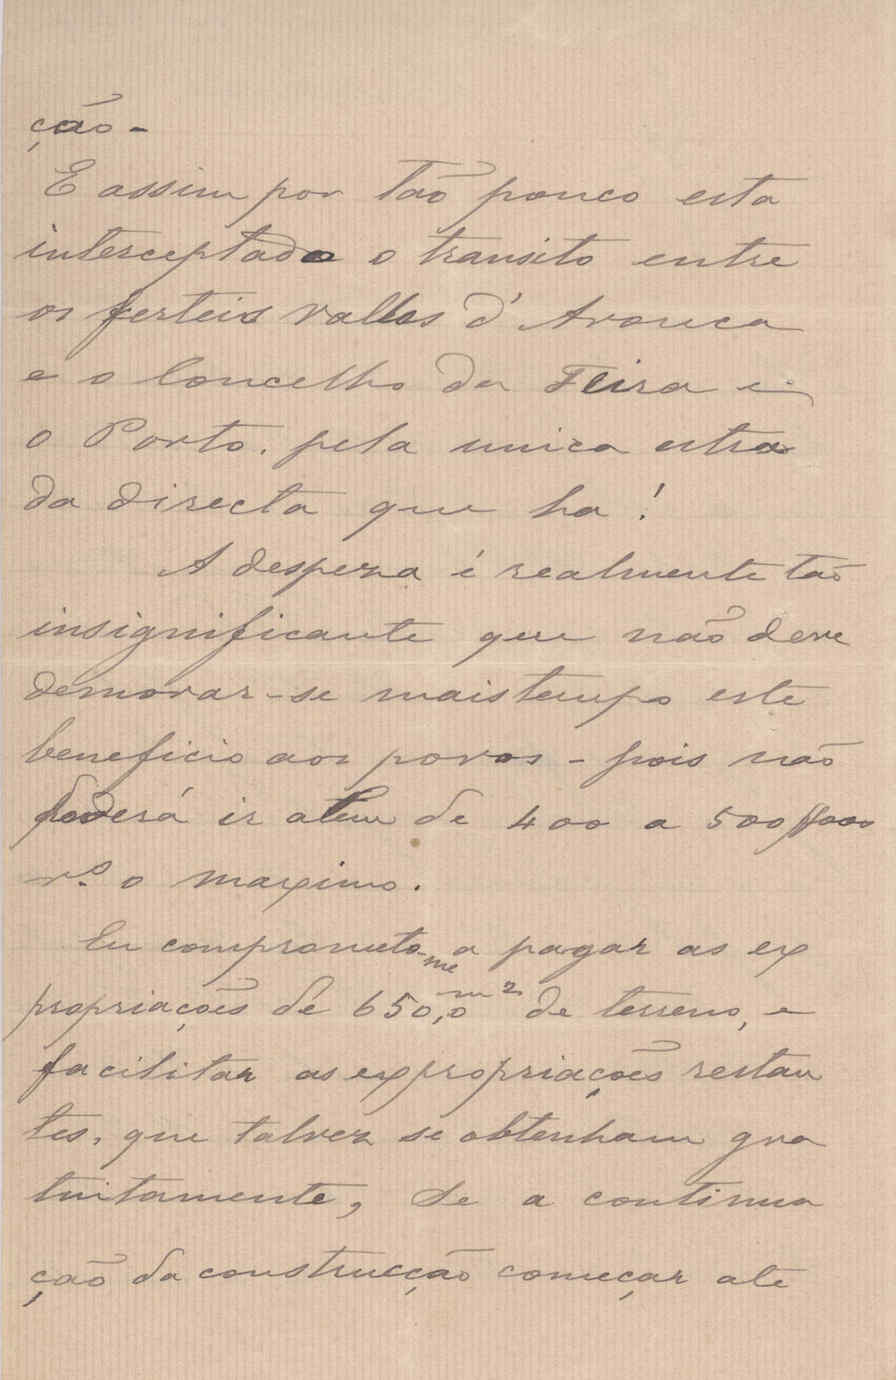 ção-
E assim por tão pouco esta
interceptado o transito entre
os ferteis valles d'Arouca
e o Concelho da Feira e
o Porto, pela unica estra
da directa que ha!
A despeza é realmente tão
insignificante que não deve
demorar-se mais tempo este
beneficio aos povos - pois não
poderá ir alem de 400 a 500$000
rs. o maximo.
Eu comprometo-me a pagar as ex
propriações de 650,0 m2 de terreno, e
facilitar as expropriações restan
tes, que talvez se obtenham gra
tuitamente, se a continua
ção da construcção começar até